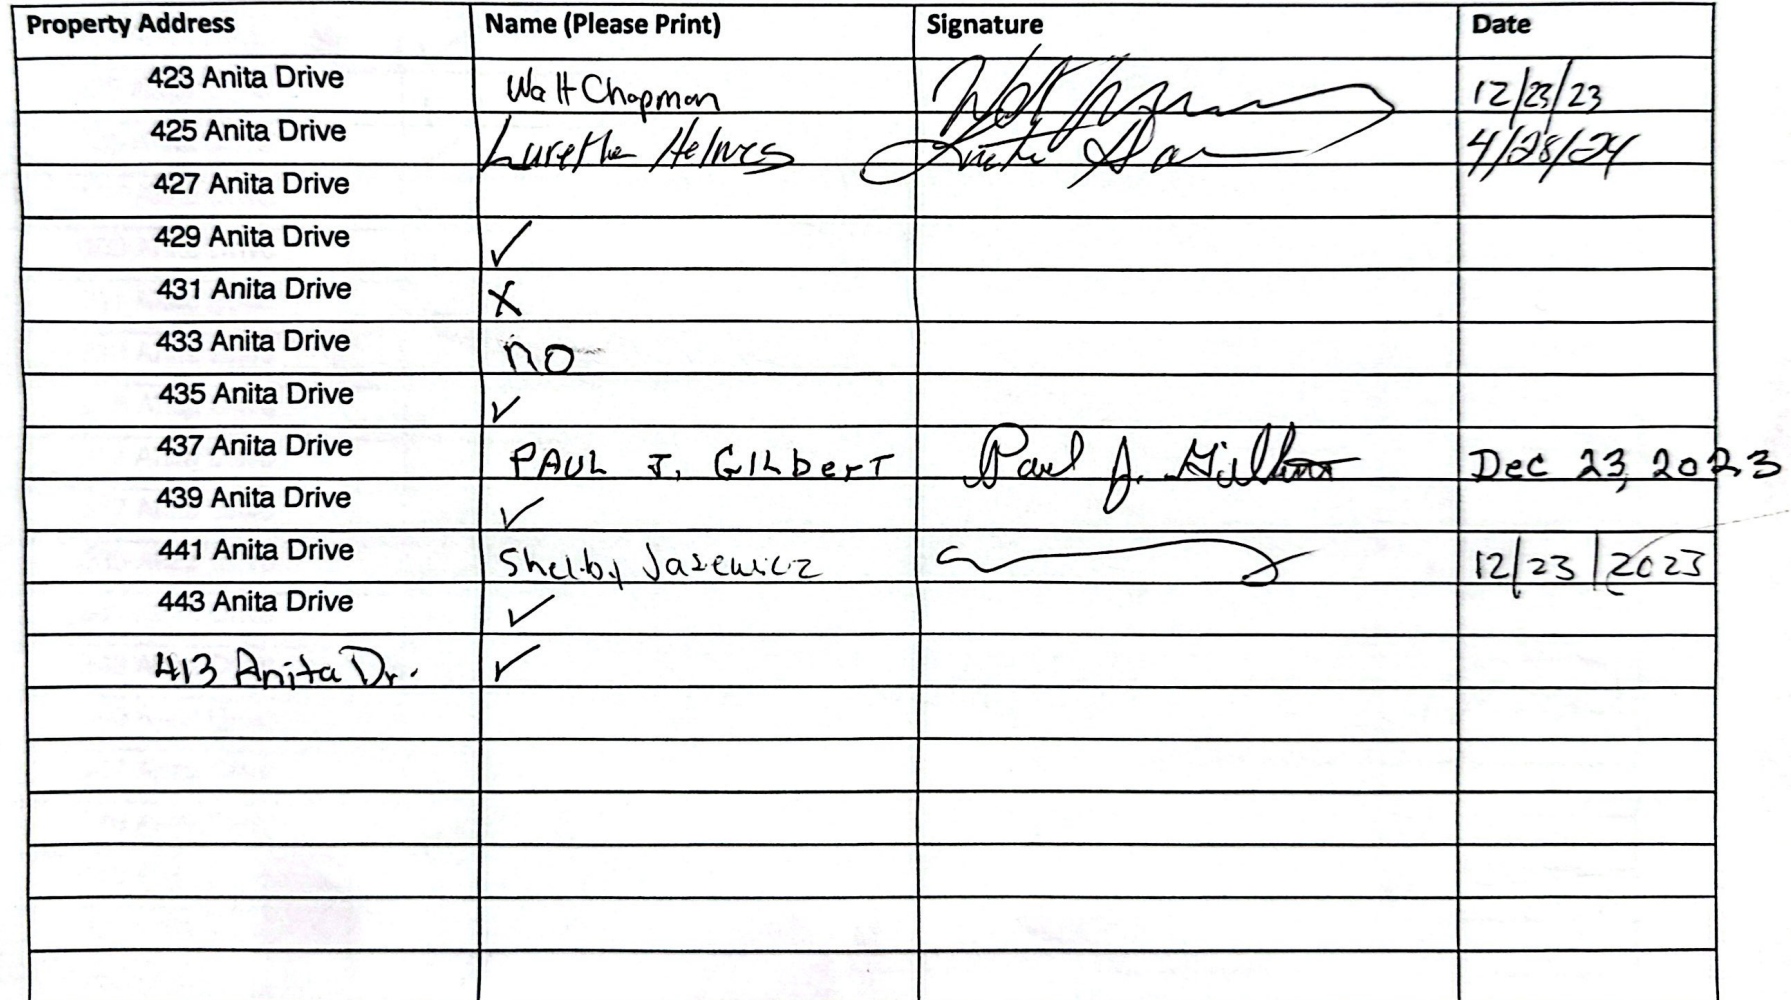 Property Address Name (Please Print) Signature Date
423 Anita Drive Walt Chapman 12/23/23
425 Anita Drive Luretha Helms 4/28/24
427 Anita Drive
429 Anita Drive ✓
431 Anita Drive X
433 Anita Drive no
435 Anita Drive ✓
437 Anita Drive PAUL J. GILberT Paul J. Gilbert Dec 23, 2023
439 Anita Drive ✓
441 Anita Drive Shelby 12/23/2023
443 Anita Drive ✓
413 Anita Dr. ✓